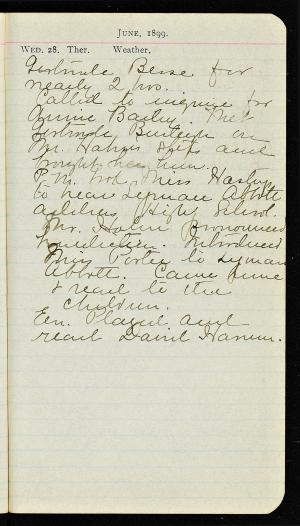 JUNE, 1899.
WED. 28. Ther. Weather.
Gertrude Besse for
nearly 2 hrs.
Called to inquire for
Annie Bailey. Met
Gertrude on
Mr. and
brought her home.
P.M. Miss
to hear Lyman Abbott
address High School.
Mr. pronounced
benediction. Introduced
Miss Porter to Lyman
Abbott. Came home
& read to the
children.
Eve. Played and
read David Harum.